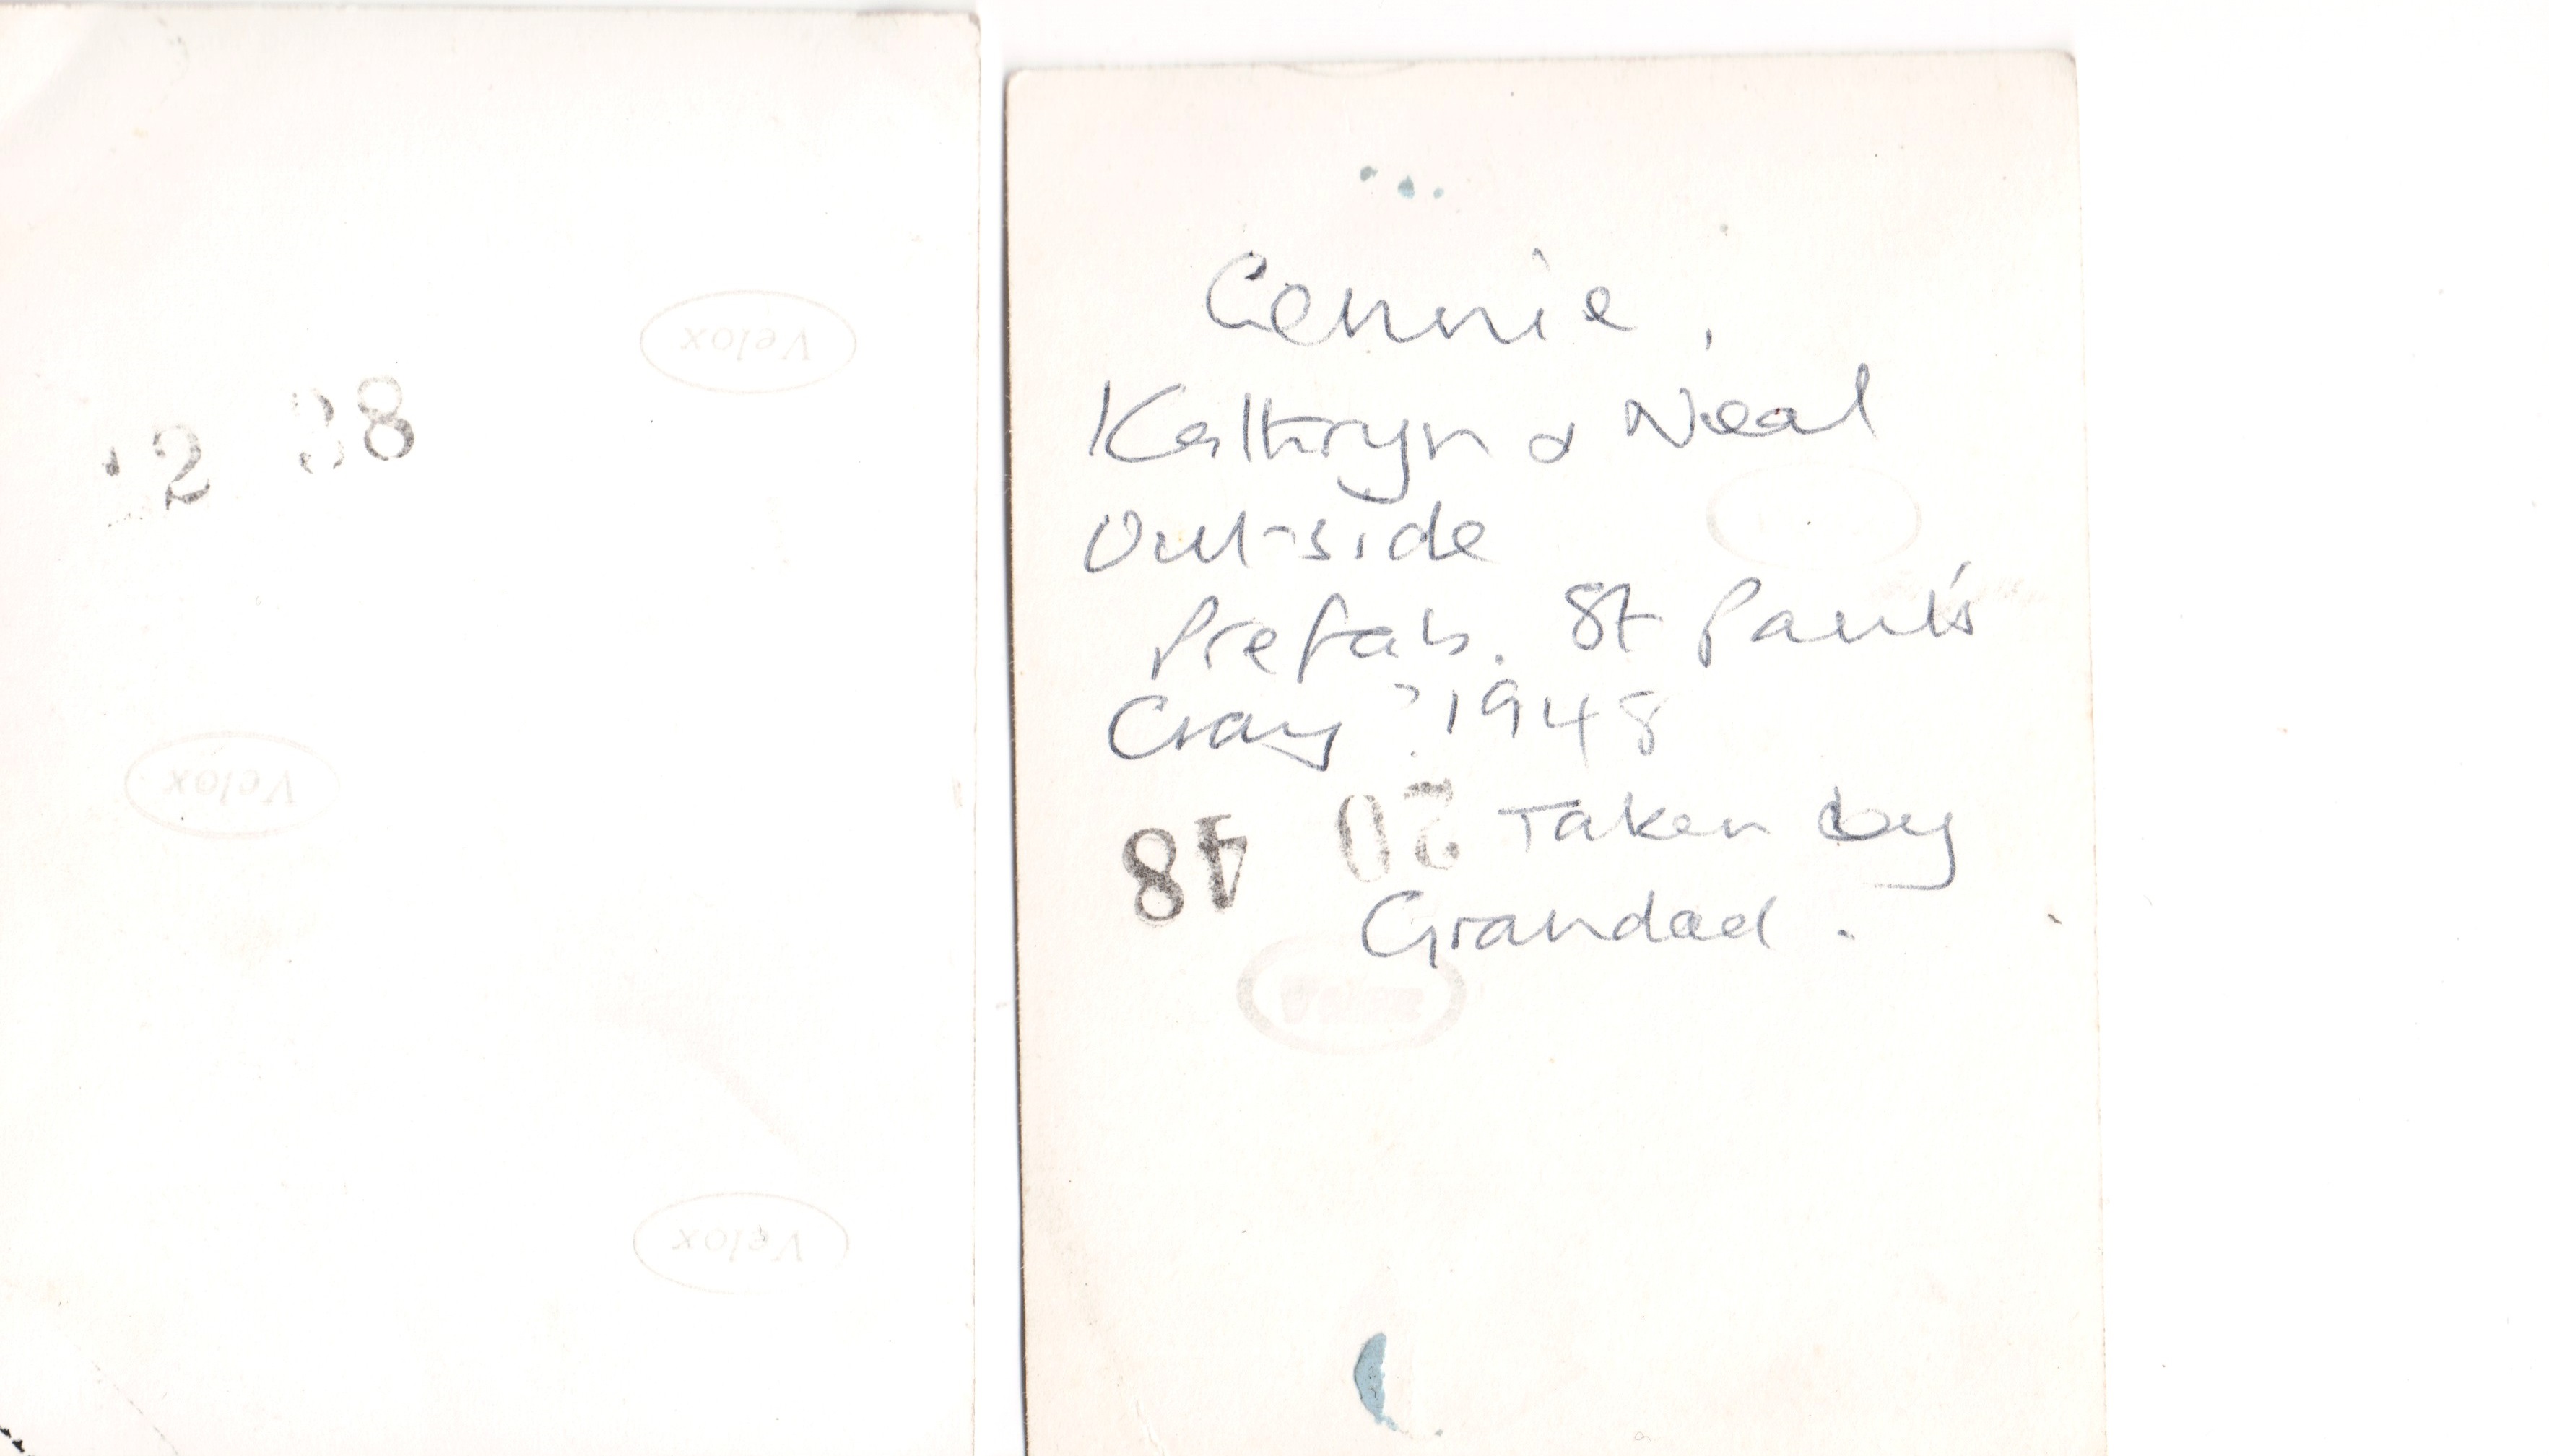 Velox
2 38
Velox
Velox
Connie,
Kathryn & Neal
Outside
Prefab. St Paul's
Cray ? 1948
48 20 Taken by
Grandad.
Velox